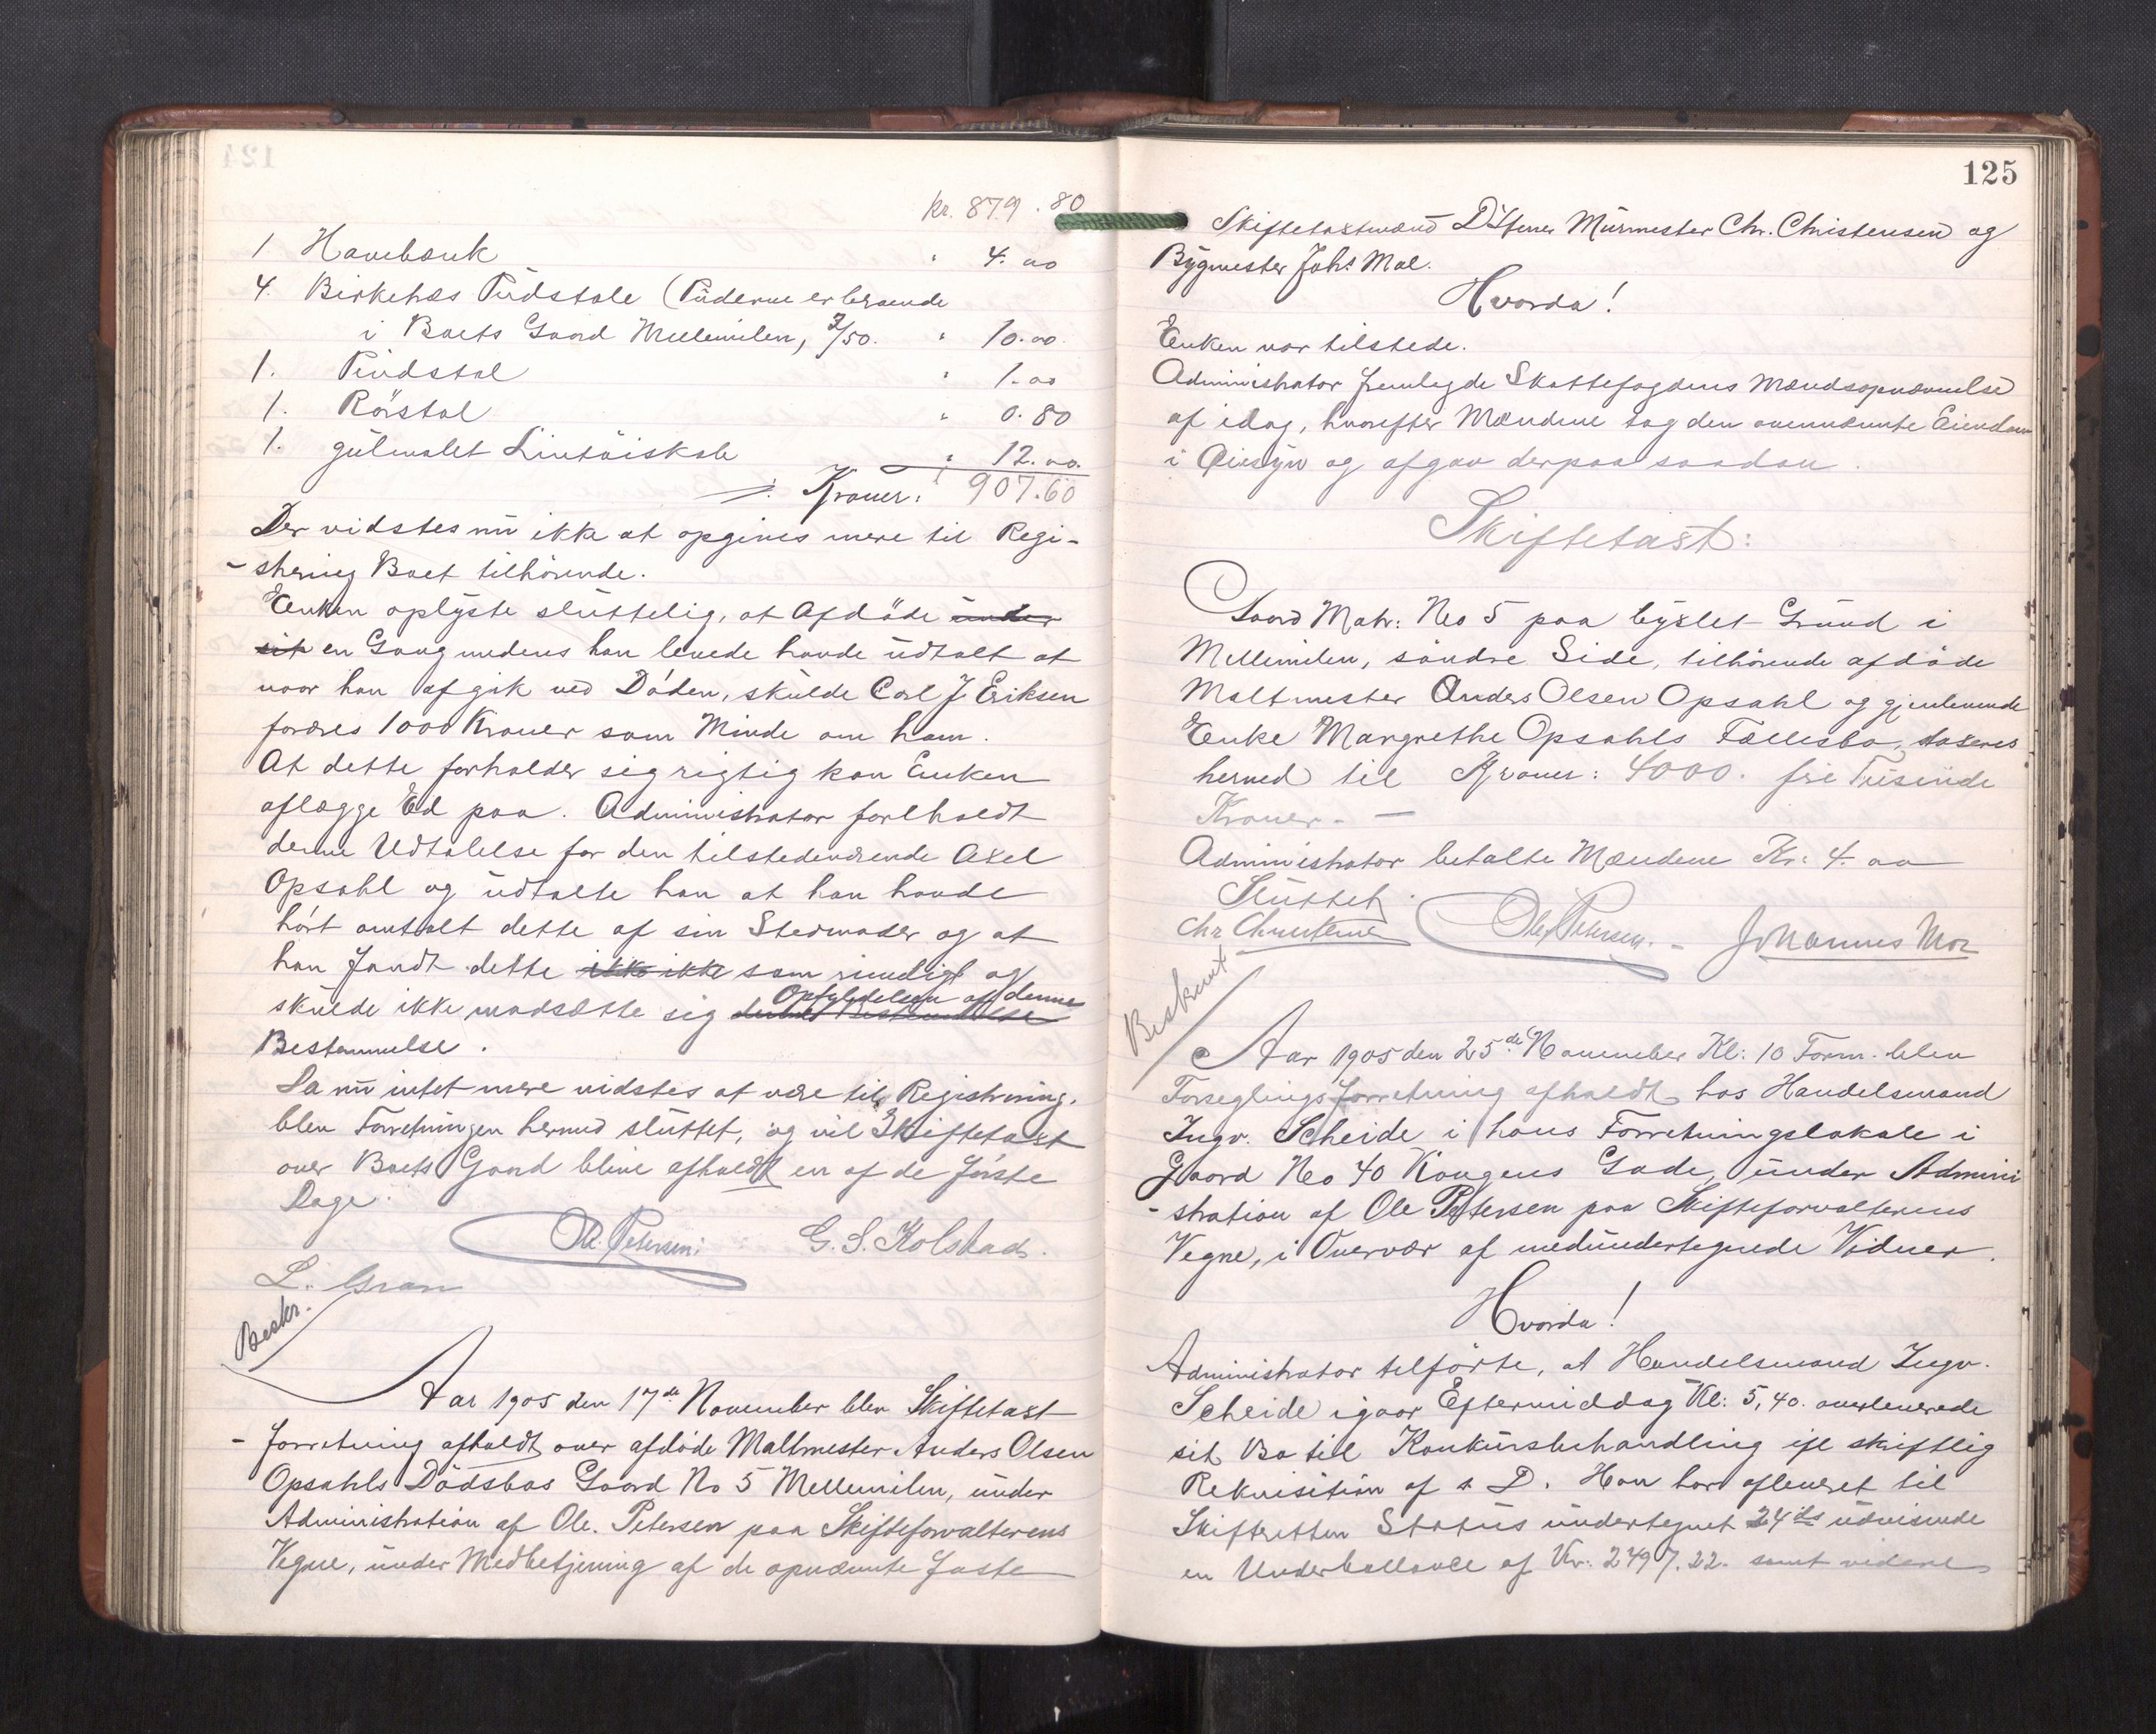 Kr. 879.80
1. Havebænk " 4.00
4. Birketræs Pudstole (Puderne er beroende
i Boets Gaard Mellemilen, 2/50. " 10.00
1. Pindstol " 1.00
1. Rørstol " 0.80
1. gulmalet Lintøiskab " 12.00.
Kroner: 907.60
Der vidstes nu ikke at opgives mere til Regi-
-strering Boet tilhörende.
Enken oplyste sluttelig, at Afdöde under
sit en Gang medens han levede havde udtalt at
naar han afgik ved Döden, skulde Carl J Eriksen
foræres 1000 Kroner som Minde om ham.
At dette forholder sig rigtig kan Enken
aflægge Ed paa. Administrator forlholdt
denne Udtalelse for den tilstedeværende Axel
Opsahl og udtalte han at han havde
hört omtalt dette af sin Stedmoder og at
han fandt dette ikke ikke som rimeligt og
Opfyldelsen af denne
skulde ikke modsætte sig denne Bestemmelse
Bestemmelse.
Da nu intet mere vidstes at være til Registrering,
blev Forretningen hermed sluttet, og vil Skiftetaxt
over Boets Gaard blive afholdt en af de förste
Dage.
Ole Petersen. G. S. Kolstad.
L. Gran
Beskr.
Aar 1905 den 17de November blev Skiftetaxt
-forretning afholdt over afdöde Maltmester Anders Olsen
Opsahls Dödsbos Gaard No 5 Mellemilen, under
Administration af Ole. Petersen paa Skifteforvalterens
Vegne, under Medbetjening af de opnævnte faste
125
Skiftetaxtmænd DHerrer Murmester Chr. Christensen og
Bygmester Johs Moe.
Hvorda!
Enken var tilstede.
Administrator fremlegde Skattefogdens Mændsopnævnelse
af idag, hvorefter Mændene tog den ovennævnte Eiendom
i Øiesyn og afgav derpaa saadan.
Skiftetaxt:
Gaard Matr: No 5 paa byxlet Grund i
Mellemilen, söndre Side, tilhörende afdöde
Maltmester Anders Olsen Opsahl og gjenlevende
Enke Margrethe Opsahls Fællesbo, taxeres
herved til Kroner: 4000. fire Tusinde
Kroner. —
Administrator betalte Mændene Kr: 4.00
Sluttet.
Chr Christensen Ole Petersen. - Johannes Moe
Beskrevet
Aar 1905 den 25de November Kl: 10 Form. blev
Forseglingsforretning afholdt hos Handelsmand
Ingv. Scheide i hans Forretningslokale i
Gaard No 40 Kongens Gade, under Admini
-stration af Ole Petersen paa Skifteforvalterens
Vegne, i Overvær af medundertegnede Vidner.
Hvorda!
Administrator tilförte, at Handelsmand Ingv.
Scheide igaar Eftermiddag Kl: 5,40. overleverede
sit Bo til Konkursbehandling ifl skriftlig
Rekvisition af s D. Han har afleveret til
Skifteretten Status undertegnet 24ds udvisende
en Underballance af Kr: 2497.22. samt videre